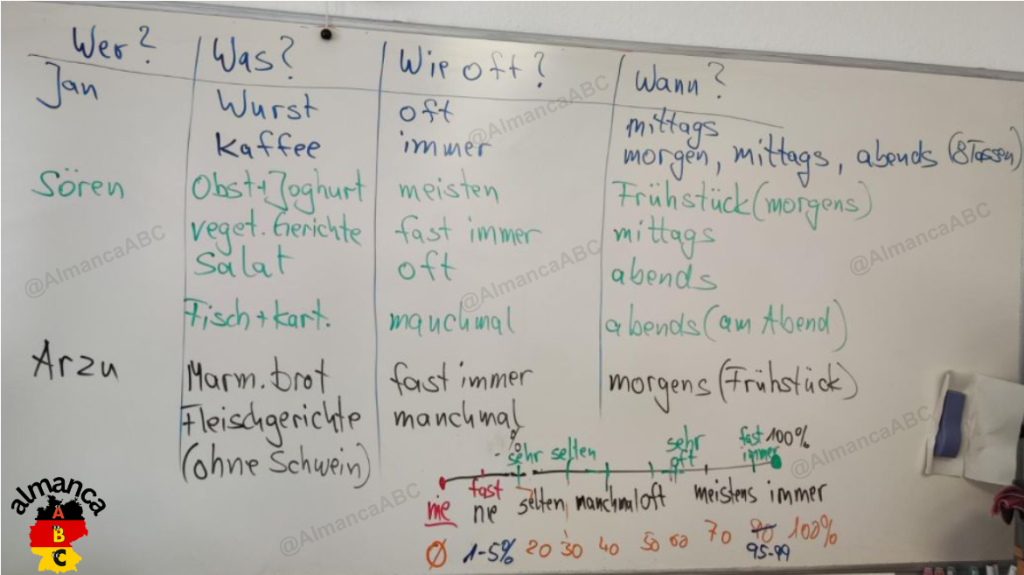 Wer? Was? Wie oft? Wann?
Jan Wurst oft mittags
Kaffee immer morgen, mittags, abends (8 Tassen)
Sören Obst+Joghurt meisten Frühstück (morgens)
veget. Gerichte fast immer mittags
Salat oft abends
Fisch + Kart. manchmal abends (am Abend)
Arzu Marm.brot fast immer morgens (Frühstück)
Fleischgerichte manchmal
(ohne Schwein)
sehr selten sehr oft fast immer 100%
nie fast ne selten manchmal oft meistens immer
Ø 1-5% 20 30 40 50 60 70 90 100%
95-99
@AlmancaABC
@AlmancaABC
@AlmancaABC
@AlmancaABC
@AlmancaABC
@AlmancaABC
almanca
A
B
C